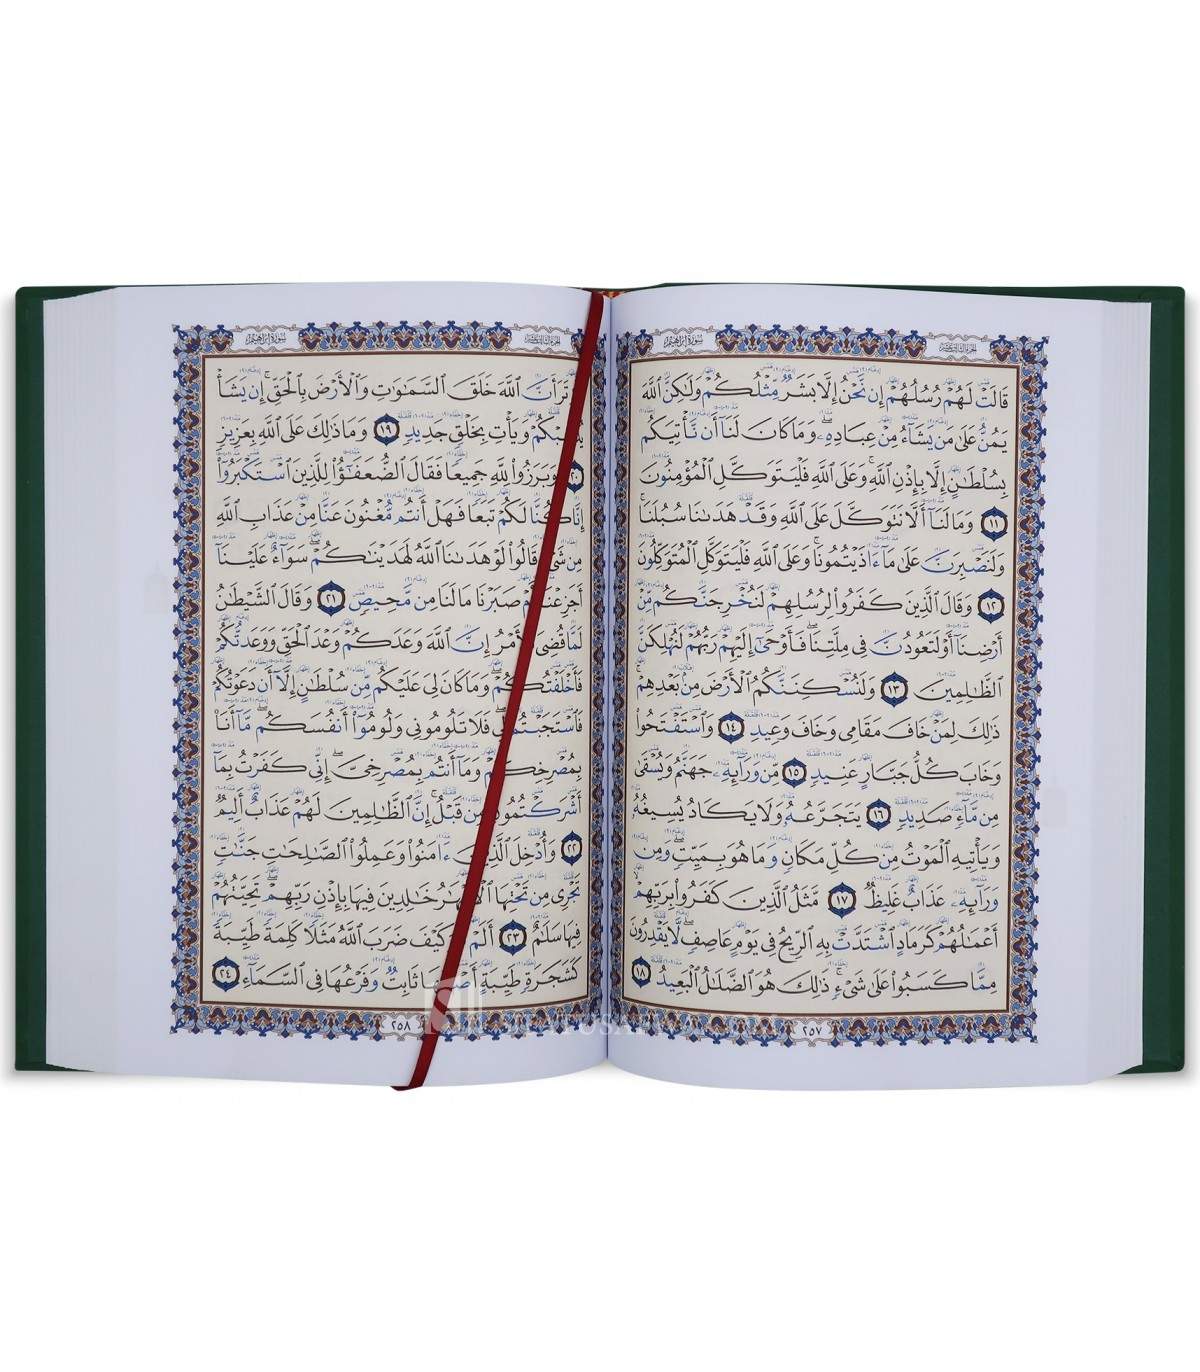 الجزء الثالث عشر
سورة إبراهيم
قَالَتْ لَهُمْ رُسُلُهُمْ إِن نَّحْنُ إِلَّا بَشَرٌ مِّثْلُكُمْ وَلَٰكِنَّ ٱللَّهَ
يَمُنُّ عَلَىٰ مَن يَشَآءُ مِنْ عِبَادِهِۦ ۖ وَمَا كَانَ لَنَآ أَن نَّأْتِيَكُم
بِسُلْطَٰنٍ إِلَّا بِإِذْنِ ٱللَّهِ ۚ وَعَلَى ٱللَّهِ فَلْيَتَوَكَّلِ ٱلْمُؤْمِنُونَ
١١ وَمَا لَنَآ أَلَّا نَتَوَكَّلَ عَلَى ٱللَّهِ وَقَدْ هَدَىٰنَا سُبُلَنَا ۚ
وَلَنَصْبِرَنَّ عَلَىٰ مَآ ءَاذَيْتُمُونَا ۚ وَعَلَى ٱللَّهِ فَلْيَتَوَكَّلِ ٱلْمُتَوَكِّلُونَ
١٢ وَقَالَ ٱلَّذِينَ كَفَرُوا۟ لِرُسُلِهِمْ لَنُخْرِجَنَّكُم مِّنْ
أَرْضِنَآ أَوْ لَتَعُودُنَّ فِى مِلَّتِنَا ۖ فَأَوْحَىٰٓ إِلَيْهِمْ رَبُّهُمْ لَنُهْلِكَنَّ
ٱلظَّٰلِمِينَ ١٣ وَلَنُسْكِنَنَّكُمُ ٱلْأَرْضَ مِنۢ بَعْدِهِمْ ۚ
ذَٰلِكَ لِمَنْ خَافَ مَقَامِى وَخَافَ وَعِيدِ ١٤ وَٱسْتَفْتَحُوا۟
وَخَابَ كُلُّ جَبَّارٍ عَنِيدٍ ١٥ مِّن وَرَآئِهِۦ جَهَنَّمُ وَيُسْقَىٰ
مِن مَّآءٍ صَدِيدٍ ١٦ يَتَجَرَّعُهُۥ وَلَا يَكَادُ يُسِيغُهُۥ
وَيَأْتِيهِ ٱلْمَوْتُ مِن كُلِّ مَكَانٍ وَمَا هُوَ بِمَيِّتٍ ۖ وَمِن
وَرَآئِهِۦ عَذَابٌ غَلِيظٌ ١٧ مَّثَلُ ٱلَّذِينَ كَفَرُوا۟ بِرَبِّهِمْ ۖ
أَعْمَٰلُهُمْ كَرَمَادٍ ٱشْتَدَّتْ بِهِ ٱلرِّيحُ فِى يَوْمٍ عَاصِفٍ ۖ لَّا يَقْدِرُونَ
مِمَّا كَسَبُوا۟ عَلَىٰ شَىْءٍ ۚ ذَٰلِكَ هُوَ ٱلضَّلَٰلُ ٱلْبَعِيدُ ١٨
٢٥٧
سورة إبراهيم
تَرَ أَنَّ ٱللَّهَ خَلَقَ ٱلسَّمَٰوَٰتِ وَٱلْأَرْضَ بِٱلْحَقِّ ۚ إِن يَشَأْ
وَيَأْتِ بِخَلْقٍ جَدِيدٍ ١٩ وَمَا ذَٰلِكَ عَلَى ٱللَّهِ بِعَزِيزٍ
٢٠ وَبَرَزُوا۟ لِلَّهِ جَمِيعًا فَقَالَ ٱلضُّعَفَٰٓؤُا۟ لِلَّذِينَ ٱسْتَكْبَرُوٓا۟
إِنَّا كُنَّا لَكُمْ تَبَعًا فَهَلْ أَنتُم مُّغْنُونَ عَنَّا مِنْ عَذَابِ ٱللَّهِ
مِن قَالُوا۟ لَوْ هَدَىٰنَا ٱللَّهُ لَهَدَيْنَٰكُمْ ۖ سَوَآءٌ عَلَيْنَآ
صَبَرْنَا مَا لَنَا مِن مَّحِيصٍ ٢١ وَقَالَ ٱلشَّيْطَٰنُ
لَمَّا قُضِىَ إِنَّ ٱللَّهَ وَعَدَكُمْ وَعْدَ ٱلْحَقِّ وَوَعَدتُّكُمْ
فَأَخْلَفْتُكُمْ ۖ وَمَا كَانَ لِىَ عَلَيْكُم مِّن سُلْطَٰنٍ إِلَّآ أَن دَعَوْتُكُمْ
فَٱسْتَجَبْتُمْ فَلَا تَلُومُونِى وَلُومُوٓا۟ أَنفُسَكُم ۖ مَّآ أَنَا۠
بِمُصْرِخِكُمْ وَمَآ أَنتُم بِمُصْرِخِىَّ ۖ إِنِّى كَفَرْتُ بِمَآ
أَشْرَكْتُمُونِ مِن قَبْلُ ۗ إِنَّ ٱلظَّٰلِمِينَ لَهُمْ عَذَابٌ أَلِيمٌ
٢٢ وَأُدْخِلَ ءَامَنُوا۟ وَعَمِلُوا۟ ٱلصَّٰلِحَٰتِ جَنَّٰتٍ
تَجْرِى مِن تَحْتِهَا خَٰلِدِينَ فِيهَا بِإِذْنِ رَبِّهِمْ ۖ تَحِيَّتُهُمْ
فِيهَا سَلَٰمٌ ٢٣ أَلَمْ كَيْفَ ضَرَبَ ٱللَّهُ مَثَلًا كَلِمَةً طَيِّبَةً
كَشَجَرَةٍ طَيِّبَةٍ ثَابِتٌ وَفَرْعُهَا فِى ٱلسَّمَآءِ ٢٤
٢٥٨